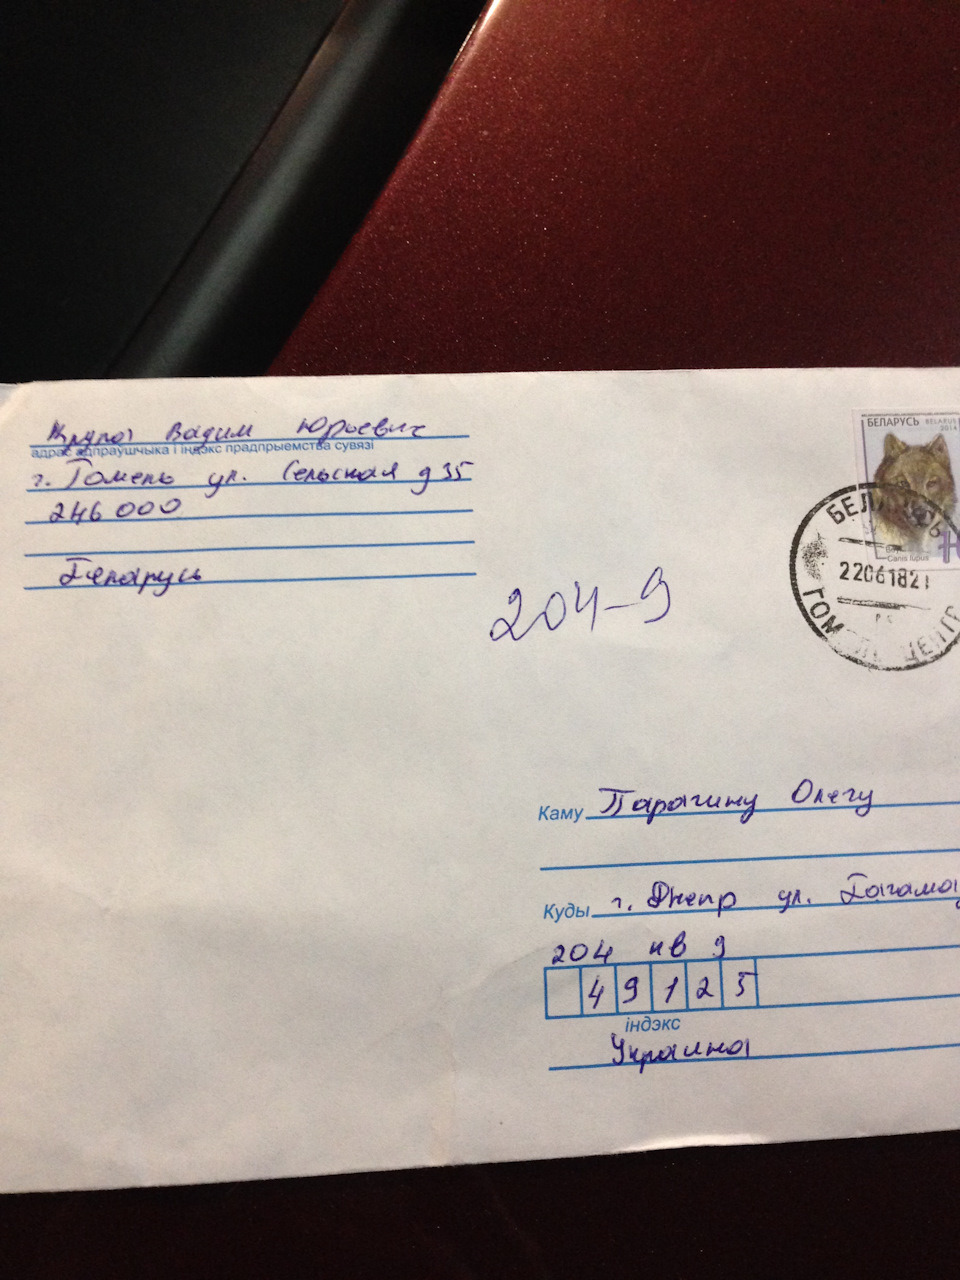 Крупа Вадим Юрьевич
адрас адпраўшчыка і індэкс прадпрыемства сувязі
г. Гомель ул. Сельская д 35
246 000
Беларусь
БЕЛАРУСЬ BELARUS
2014
Canis lupus
БЕЛАРУСЬ
22061821
ГОМЕЛЬ ЦЕНТР
204-9
Каму Парагину Олегу
Куды г. Днепр ул.
204 кв 9
49125
індэкс
Украина